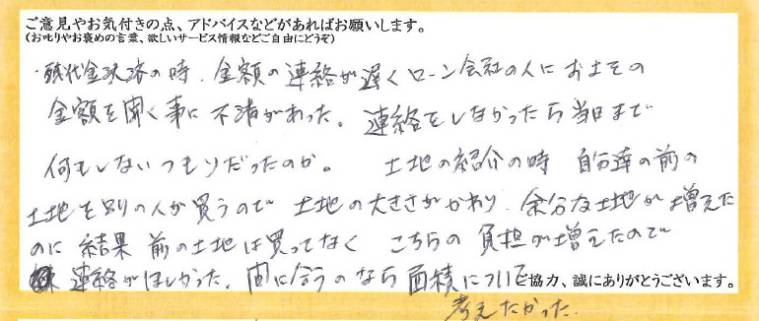 ご意見やお気付きの点、アドバイスなどがあればお願いします。
(お叱りやお褒めの言葉、欲しいサービス情報などご自由にどうぞ)
・残代金決済の時、金額の連絡が遅くローン会社の人におよその
金額を聞く事に不満があった。連絡をしなかったら当日まで
何もしないつもりだったのか。 土地の紹介の時 自分達の前の
土地を別の人が買うので 土地の大きさがかわり、余分な土地が増えた
のに 結果 前の土地は買ってなく こちらの 負担が増えたので
連絡がほしかった。間に合うのなら 面積について
協力、誠にありがとうございます。
考えたかった。